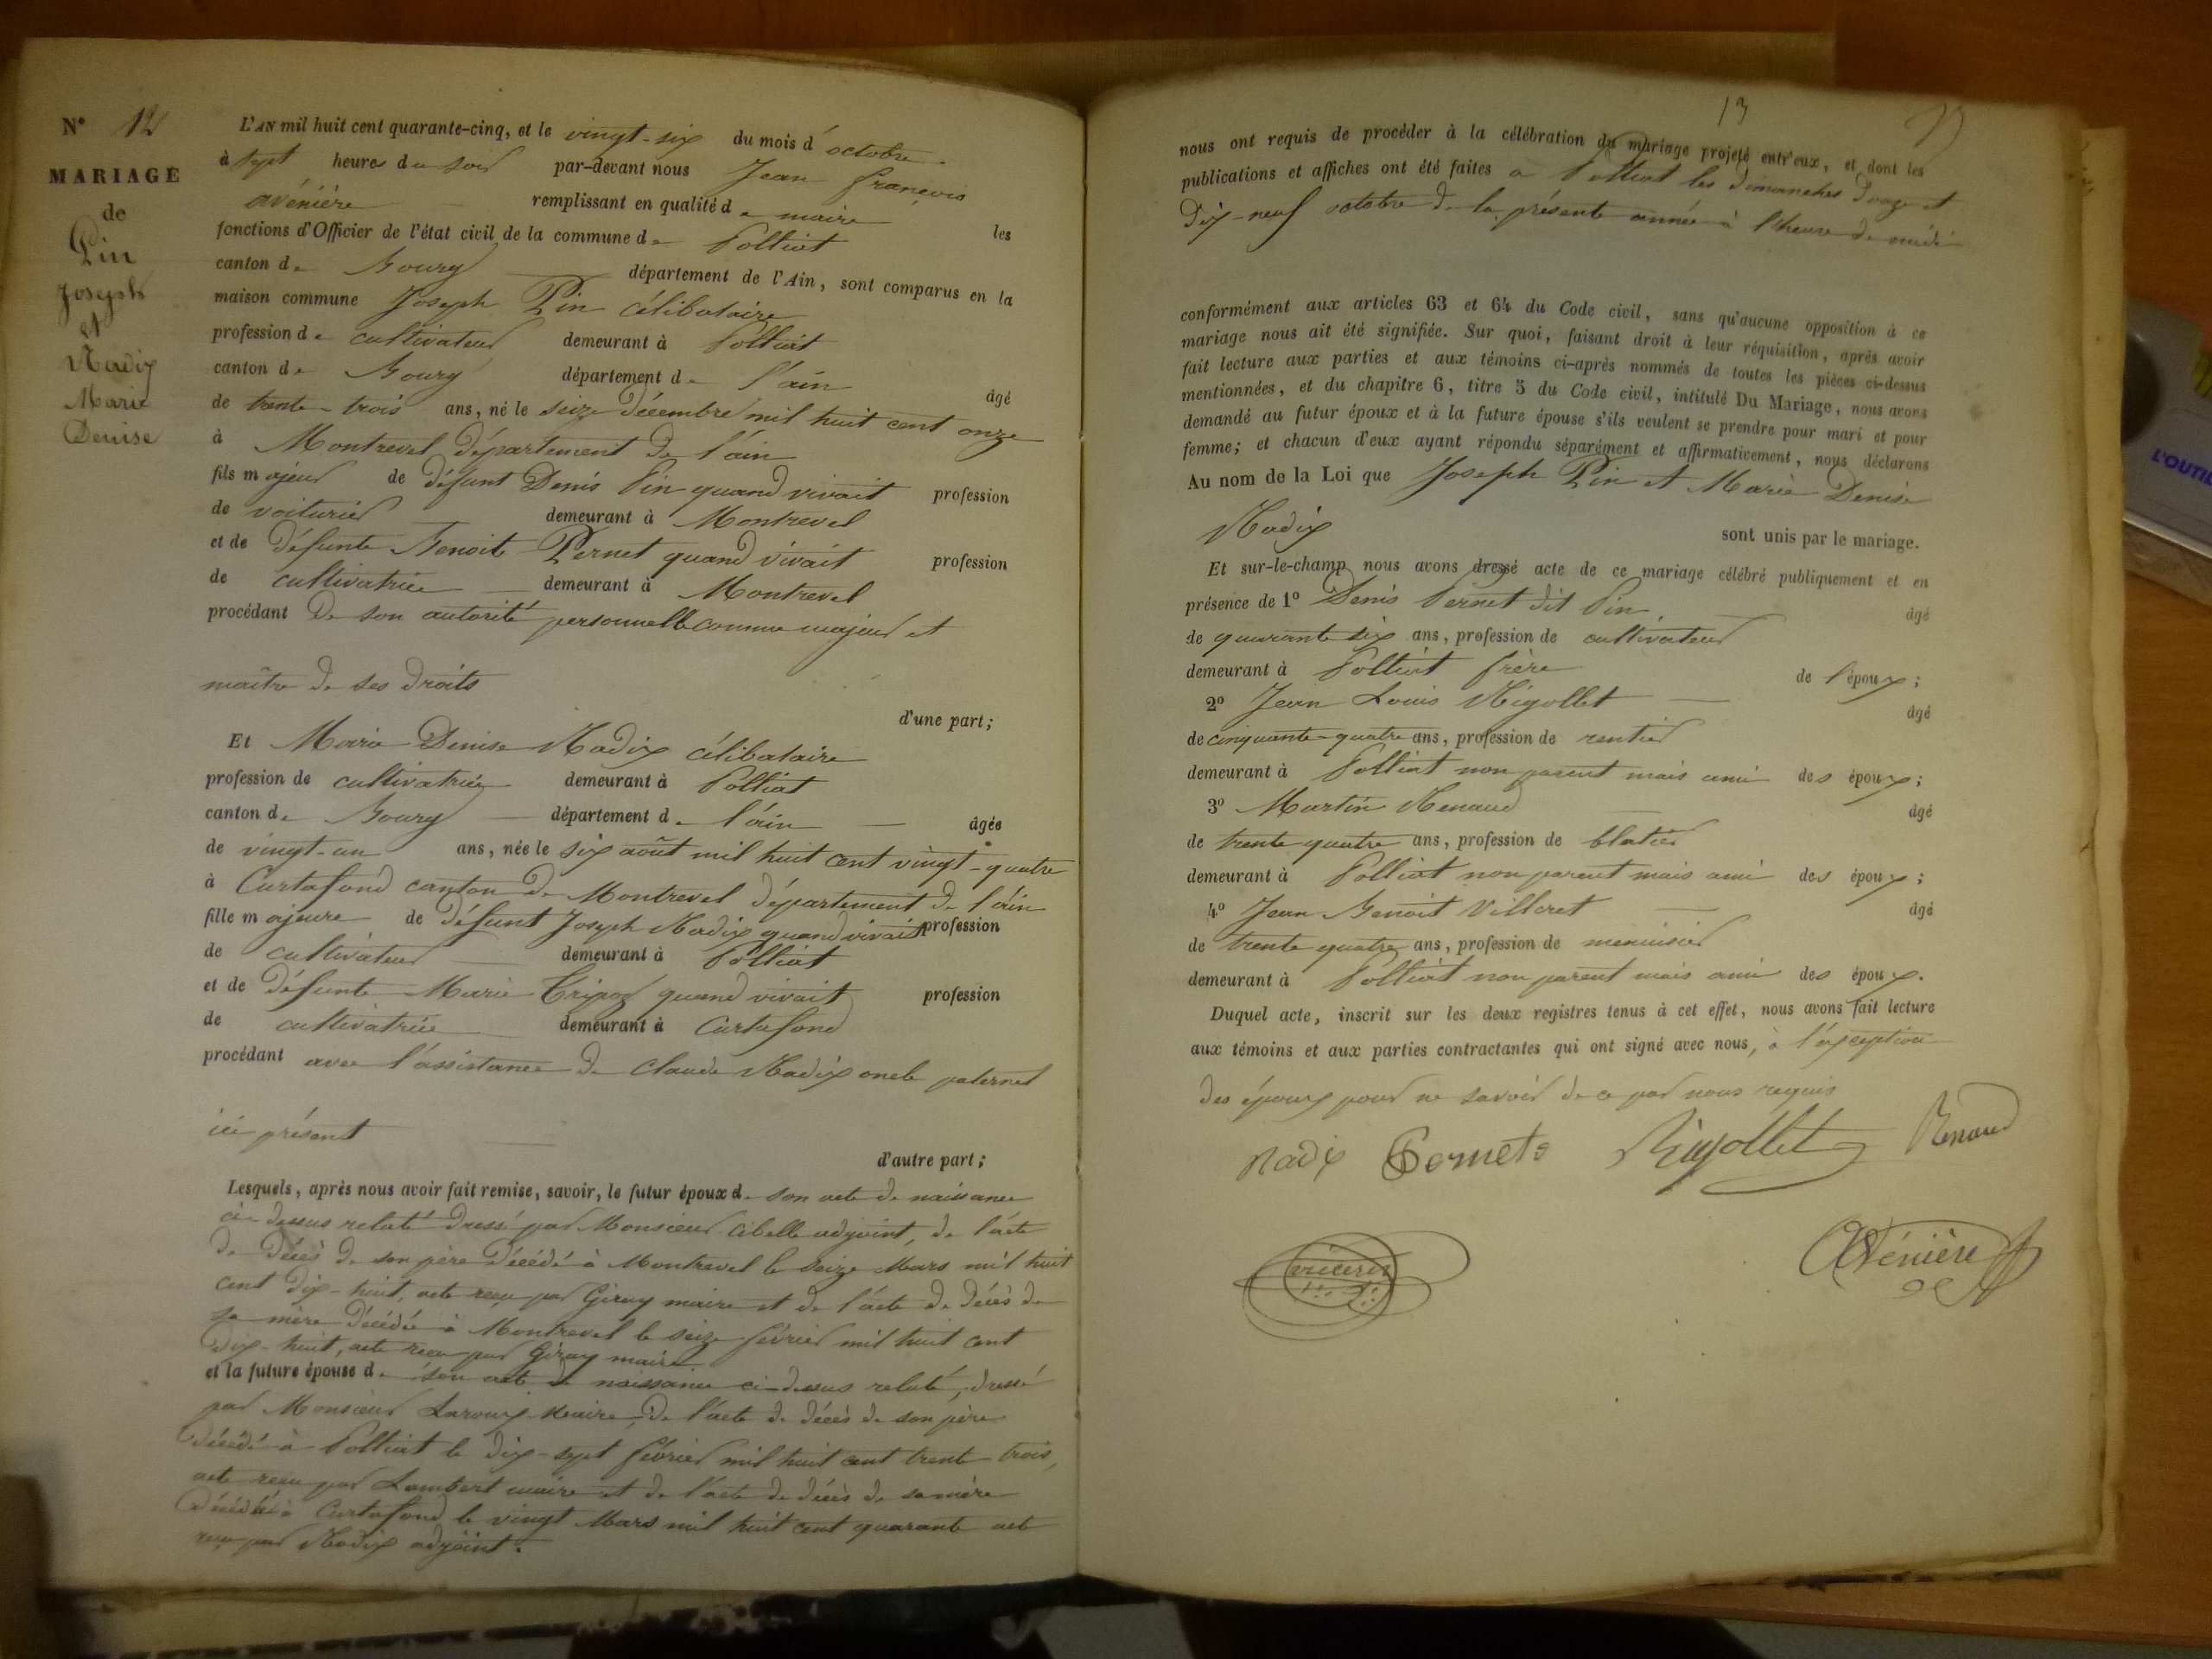 N° 12
MARIAGE
de
Pin
Joseph
et
Nadix
Marie
Denise
L'AN mil huit cent quarante-cinq, et le vingt-six du mois d'octobre
à sept heures du soir par-devant nous Jean françois
avénière remplissant en qualité de maire les
fonctions d'Officier de l'état civil de la commune de Polliat
canton de Bourg département de l'Ain, sont comparus en la
maison commune Joseph Pin célibataire
profession de cultivateur demeurant à Polliat
canton de Bourg département de l'ain âgé
de trente-trois ans, né le seize décembre mil huit cent onze
à Montrevel département de l'ain
fils majeur de défunt Denis Pin quand vivait profession
de voiturier demeurant à Montrevel
et de défunte Benoite Pernet quand vivait profession
de cultivatrice demeurant à Montrevel
procédant de son autorité personnelle comme majeur et
maître de ses droits
d'une part;
Et Marie Denise Nadix célibataire
profession de cultivatrice demeurant à Polliat
canton de Bourg département de l'ain âgée
de vingt-un ans, née le six août mil huit cent vingt-quatre
à Curtafond canton de Montrevel département de l'ain
fille majeure de défunt Joseph Nadix quand vivait profession
de cultivateur demeurant à Polliat
et de défunte Marie Tripoz quand vivait profession
de cultivatrice demeurant à Curtafond
procédant avec l'assistance de Claude Nadix oncle paternel
ici présent
d'autre part;
Lesquels, après nous avoir fait remise, savoir, le futur époux de son acte de naissance
ci-dessus relaté dressé par Monsieur Cibelle adjoint, de l'acte
de décès de son père décédé à Montrevel le seize Mars mil huit
cent dix-huit, acte reçu par Giray maire et de l'acte de décès de
sa mère décédée à Montrevel le seize février mil huit cent
dix-huit, acte reçu par Giray maire
et la future épouse de son acte de naissance ci-dessus relaté, dressé
par Monsieur maire, de l'acte de décès de son père
décédé à Polliat le dix-sept février mil huit cent trente trois,
acte reçu par Lambert maire et de l'acte de décès de sa mère
décédée à Curtafond le vingt Mars mil huit cent quarante acte
reçu par Nadix adjoint.
13
nous ont requis de procéder à la célébration du mariage projeté entr'eux, et dont les
publications et affiches ont été faites a Polliat les dimanches douze et
dix-neuf octobre de la présente année à l'heure de midi
conformément aux articles 63 et 64 du Code civil, sans qu'aucune opposition à ce
mariage nous ait été signifiée. Sur quoi, faisant droit à leur réquisition, après avoir
fait lecture aux parties et aux témoins ci-après nommés de toutes les pièces ci-dessus
mentionnées, et du chapitre 6, titre 5 du Code civil, intitulé Du Mariage, nous avons
demandé au futur époux et à la future épouse s'ils veulent se prendre pour mari et pour
femme; et chacun d'eux ayant répondu séparément et affirmativement, nous déclarons
Au nom de la Loi que Joseph Pin et Marie Denise
Nadix sont unis par le mariage.
Et sur-le-champ nous avons dressé acte de ce mariage célébré publiquement et en
présence de 1° Denis Pernet dit Pin âgé
de quarante six ans, profession de cultivateur
demeurant à Polliat frère de l'époux;
2° Jean Louis Rigollet âgé
de cinquante-quatre ans, profession de rentier
demeurant à Polliat non parent mais ami des époux;
3° Martin Renaud âgé
de trente quatre ans, profession de blatier
demeurant à Polliat non parent mais ami des époux;
4° Jean Benoit Villeret âgé
de trente quatre ans, profession de menuisier
demeurant à Polliat non parent mais ami des époux.
Duquel acte, inscrit sur les deux registres tenus à cet effet, nous avons fait lecture
aux témoins et aux parties contractantes qui ont signé avec nous, à l'exception
des époux pour ne savoir de ce par nous requis
Nadix Pernet Rigollet Renaud
Avénière
L'OUTIL